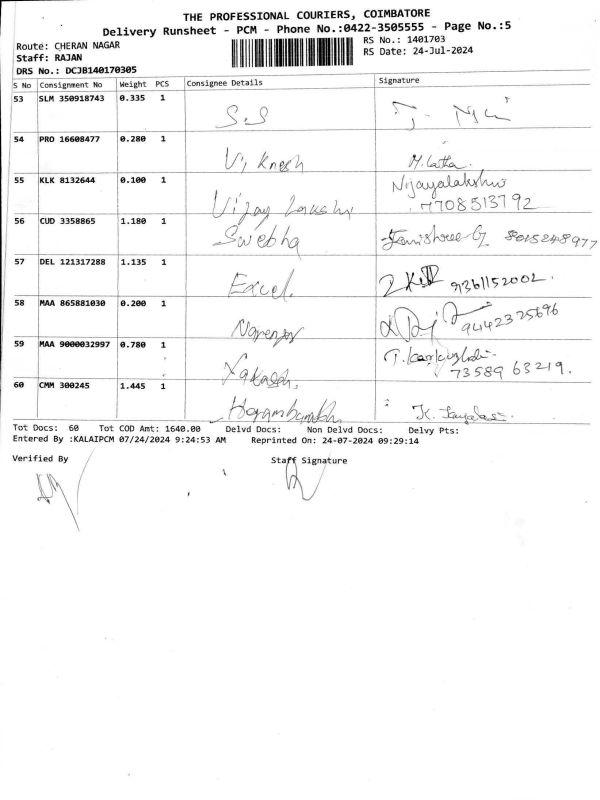 THE PROFESSIONAL COURIERS, COIMBATORE
Delivery Runsheet - PCM - Phone No.:0422-3505555 - Page No.:5
Route: CHERAN NAGAR
RS No.: 1401703
Staff: RAJAN
RS Date: 24-Jul-2024
DRS No.: DCJB140170305
S No Consignment No Weight PCS Consignee Details Signature
53 SLM 350918743 0.335 1 S.S
54 PRO 16608477 0.280 1 M. Latha.
55 KLK 8132644 0.100 1 Vijay Lakshi Vijayalakshmi
7708513792
56 CUD 3358865 1.180 1 Swebha 8015248977
57 DEL 121317288 1.135 1 Excel. 9361152002.
58 MAA 865881030 0.200 1 9442325696
59 MAA 9000032997 0.780 1
73589 63219.
60 CMM 300245 1.445 1 K.
Tot Docs: 60 Tot COD Amt: 1640.00 Delvd Docs: Non Delvd Docs: Delvy Pts:
Entered By :KALAIPCM 07/24/2024 9:24:53 AM Reprinted On: 24-07-2024 09:29:14
Verified By Staff Signature